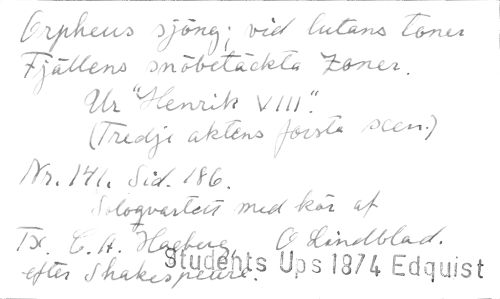 Orpheus sjöng; vid lutans toner
Fjällens snöbetäckta zoner.
Ur "Henrik VIII".
(Tredje aktens första scen.)
Nr. 141. Sid. 186.
Soloqvartett med kör af
Tx. C. A. Hagberg O Lindblad.
efter Shakespeare.
Students Ups 1874 Edquist